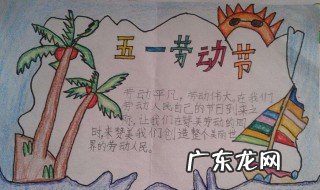 五一劳动节
劳动平凡,劳动伟大,在我们
劳动人民自己的节日到来之
际,让我们在赞美劳动的同
时,来赞美我们创造整个美丽世
界的劳动人民。
广东龙网